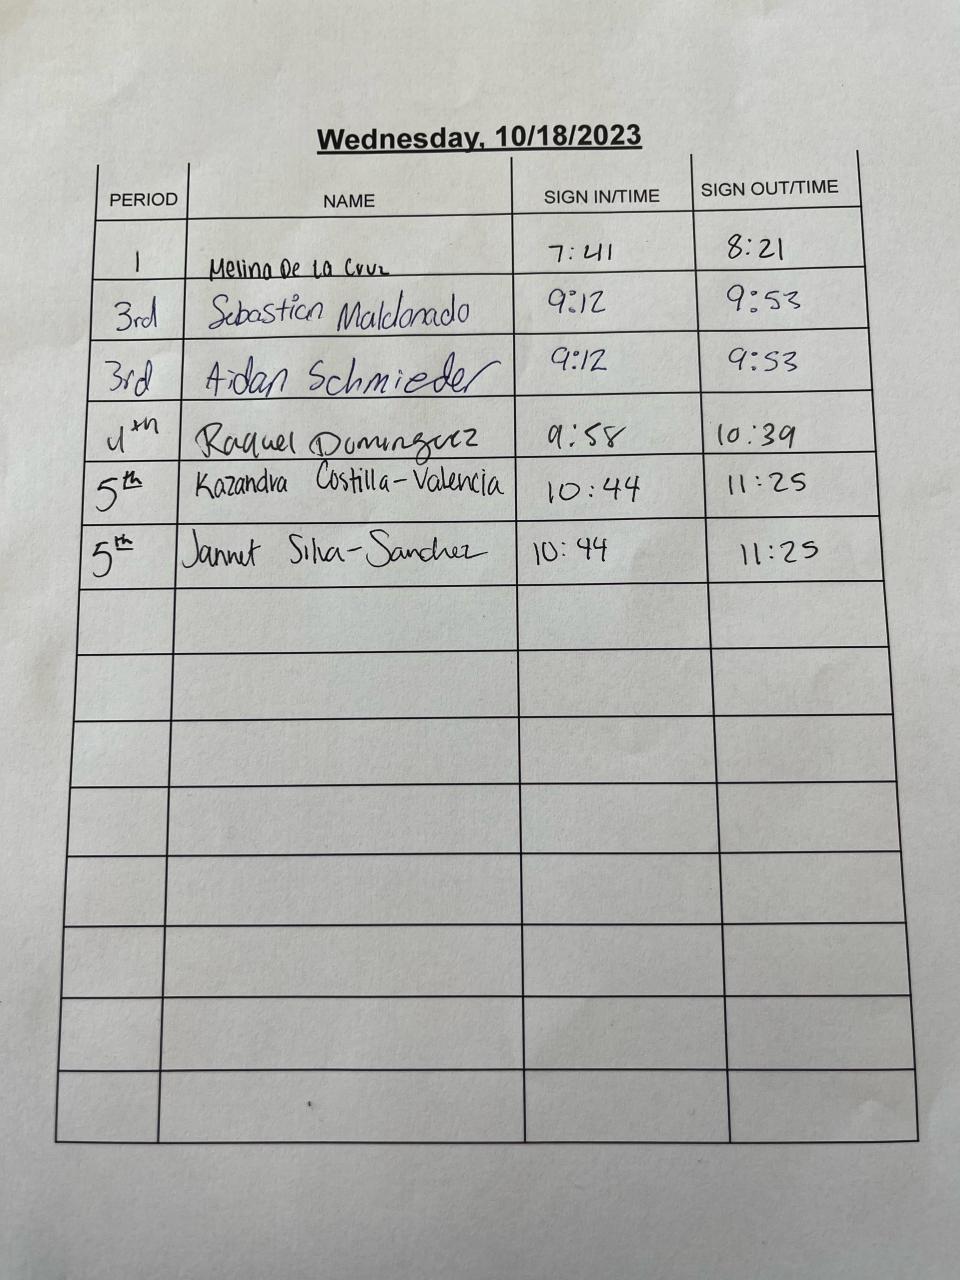 Wednesday, 10/18/2023
PERIOD NAME SIGN IN/TIME SIGN OUT/TIME
1 Melina De La Cruz 7:41 8:21
3rd Sebastian Maldonado 9:12 9:53
3rd Aidan Schmieder 9:12 9:53
4th Raquel Dominguez 9:58 10:39
5th Kazandra Costilla-Valencia 10:44 11:25
5th Jannet Silva-Sanchez 10:44 11:25